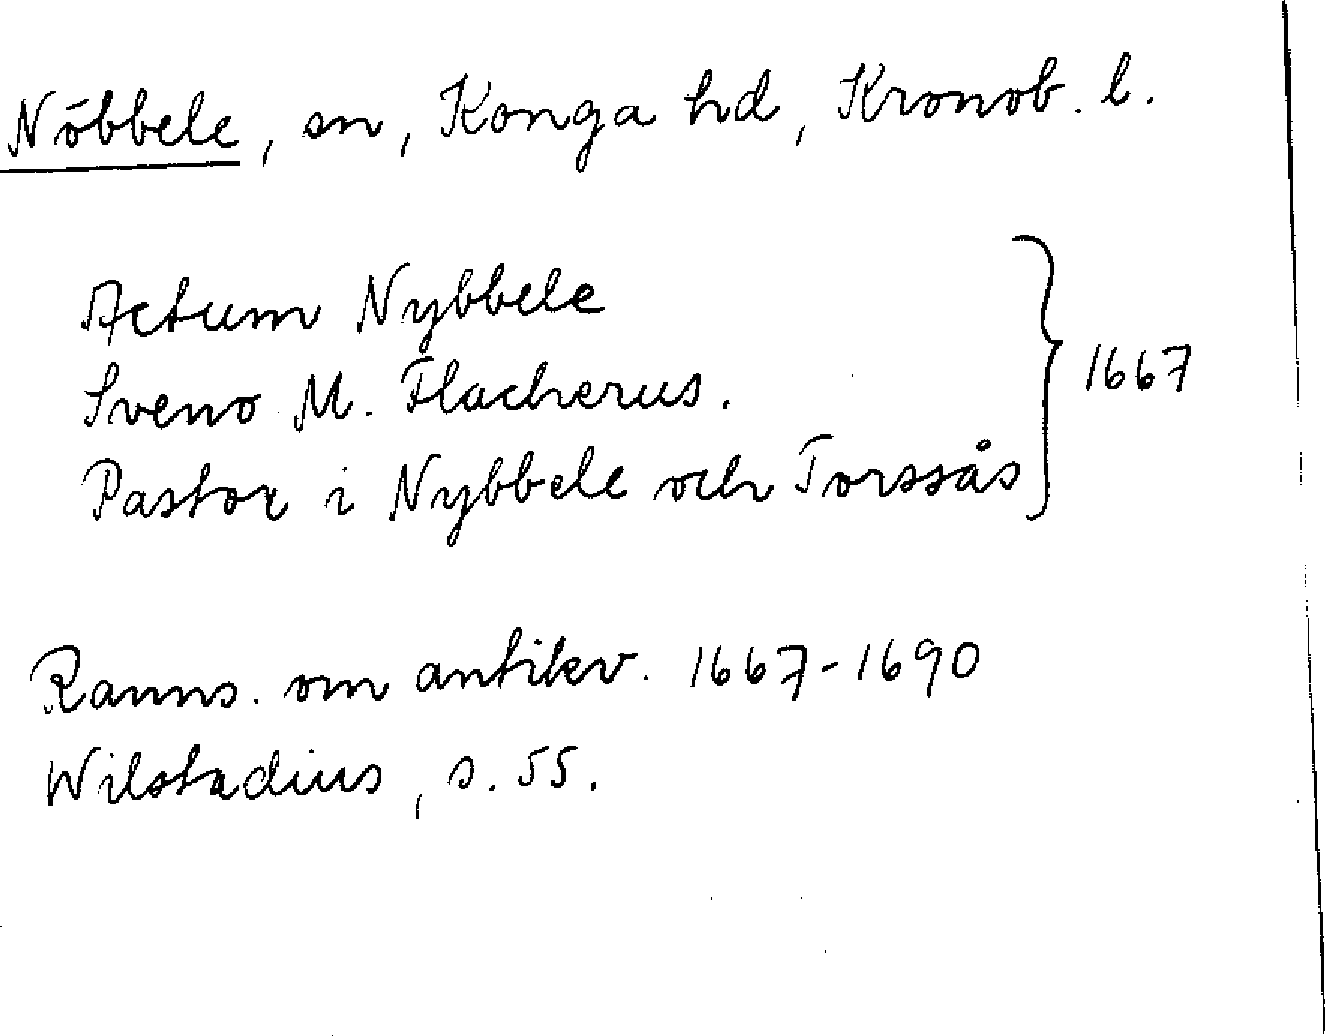 Nöbbele, sn, Konga hd, Kronob. l.
Actum Nybbele
Sveno M. Flacherus.
Pastor i Nybbele och Torssås
} 1667
Ranns. om antikv. 1667-1690
Wilstadius, s. 55.